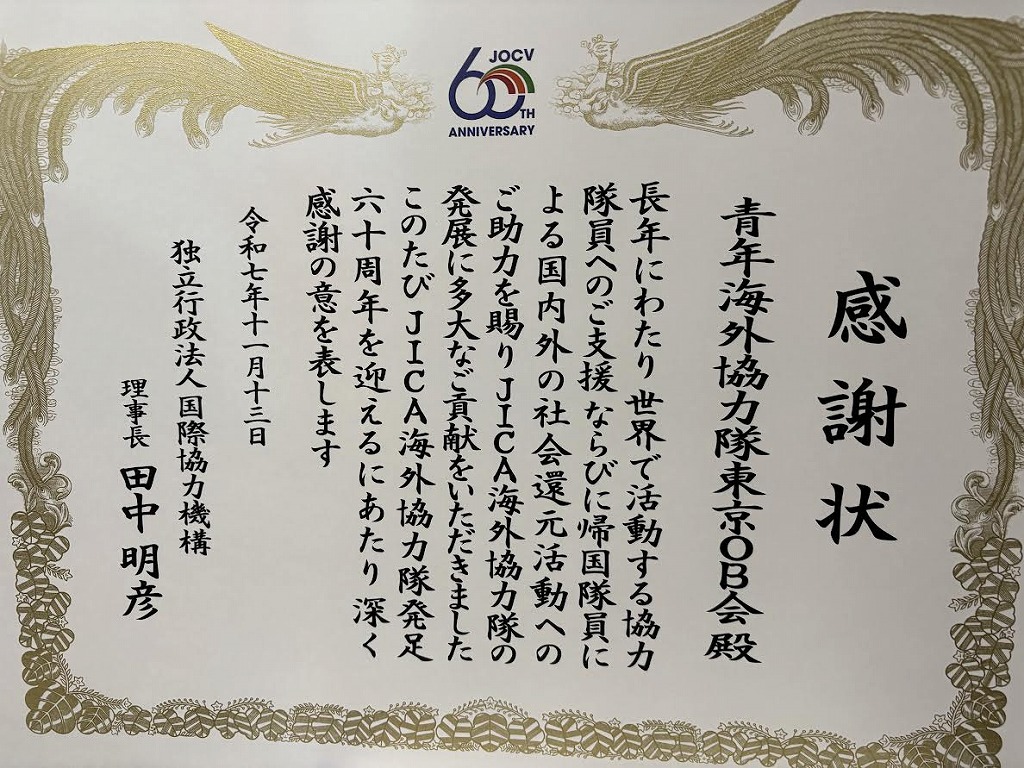 JOCV
60TH
ANNIVERSARY
感謝状
青年海外協力隊東京OB会殿
長年にわたり世界で活動する協力
隊員へのご支援ならびに帰国隊員に
よる国内外の社会還元活動への
ご助力を賜りJICA海外協力隊の
発展に多大なご貢献をいただきました
このたびJICA海外協力隊発足
六十周年を迎えるにあたり深く
感謝の意を表します
令和七年十一月十三日
独立行政法人国際協力機構
理事長 田中明彦